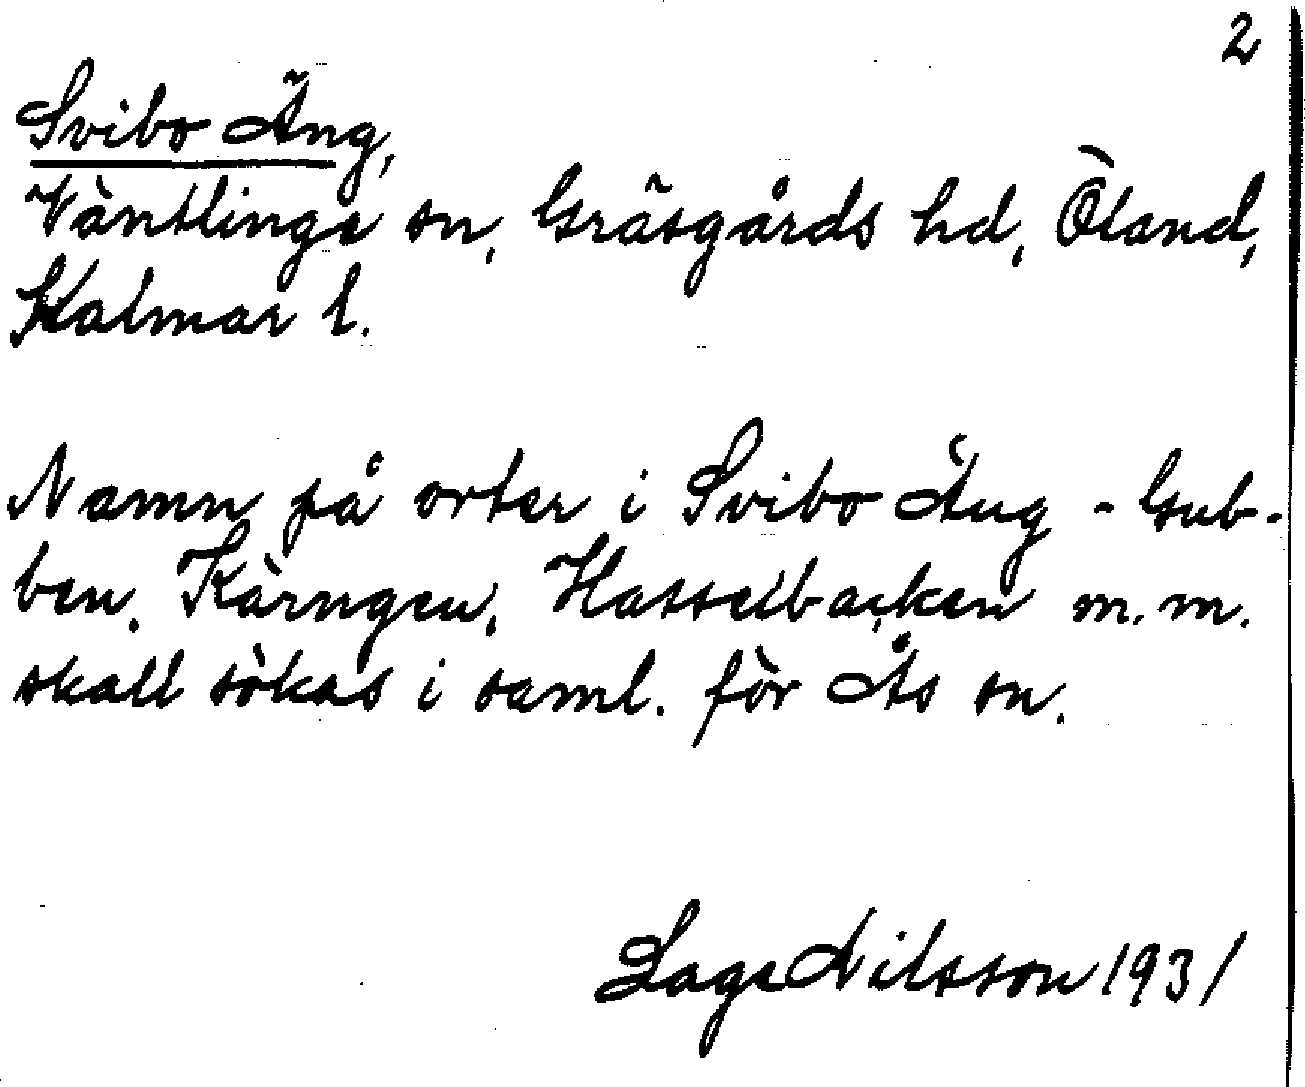 2
Svibo Äng,
Väntlinge sn, Gräsgårds hd, Öland,
Kalmar l.
Namn på orter i Svibo Äng - Gub-
ben, Kärngen, Hasselbacken m.m.
skall sökas i saml. för Ås sn.
Lage Nilsson 1931